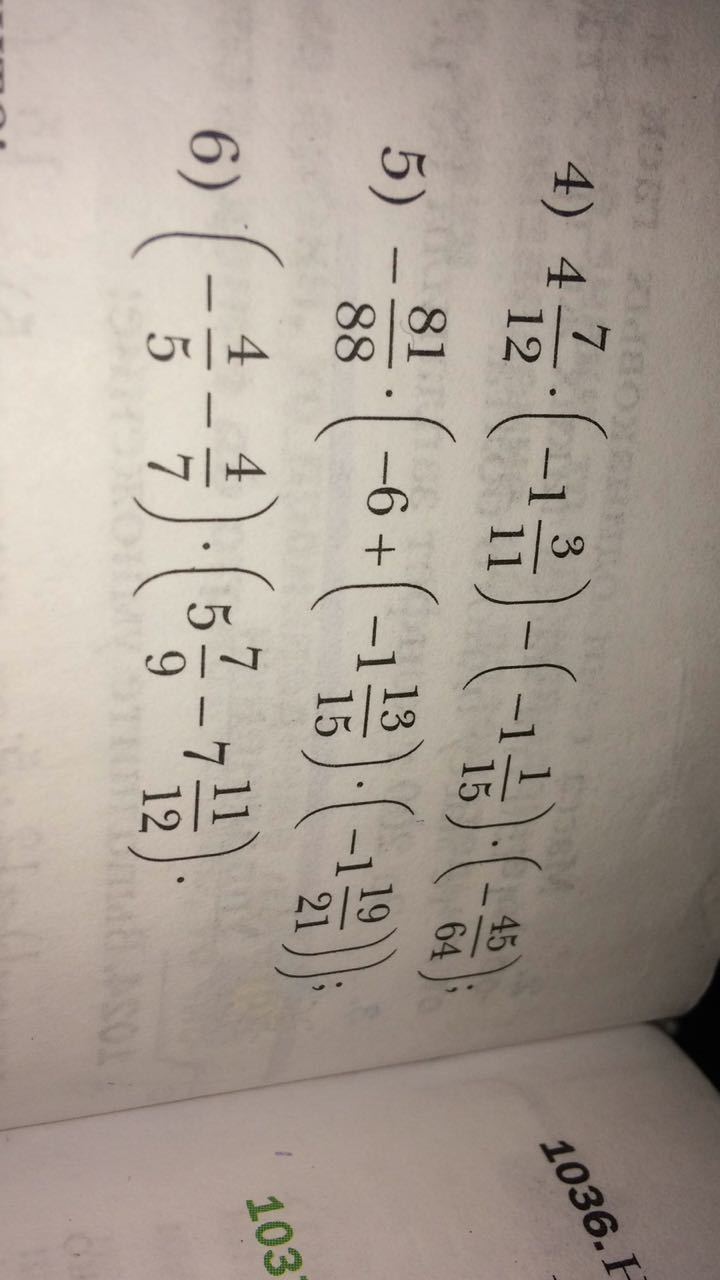 4) 4 7/12 · (−1 3/11) − (−1 1/15) · (−45/64);
5) −81/88 · (−6 + (−1 13/15) · (−1 19/21));
6) (−4/5 − 4/7) · (5 7/9 − 7 11/12).
1036.
103